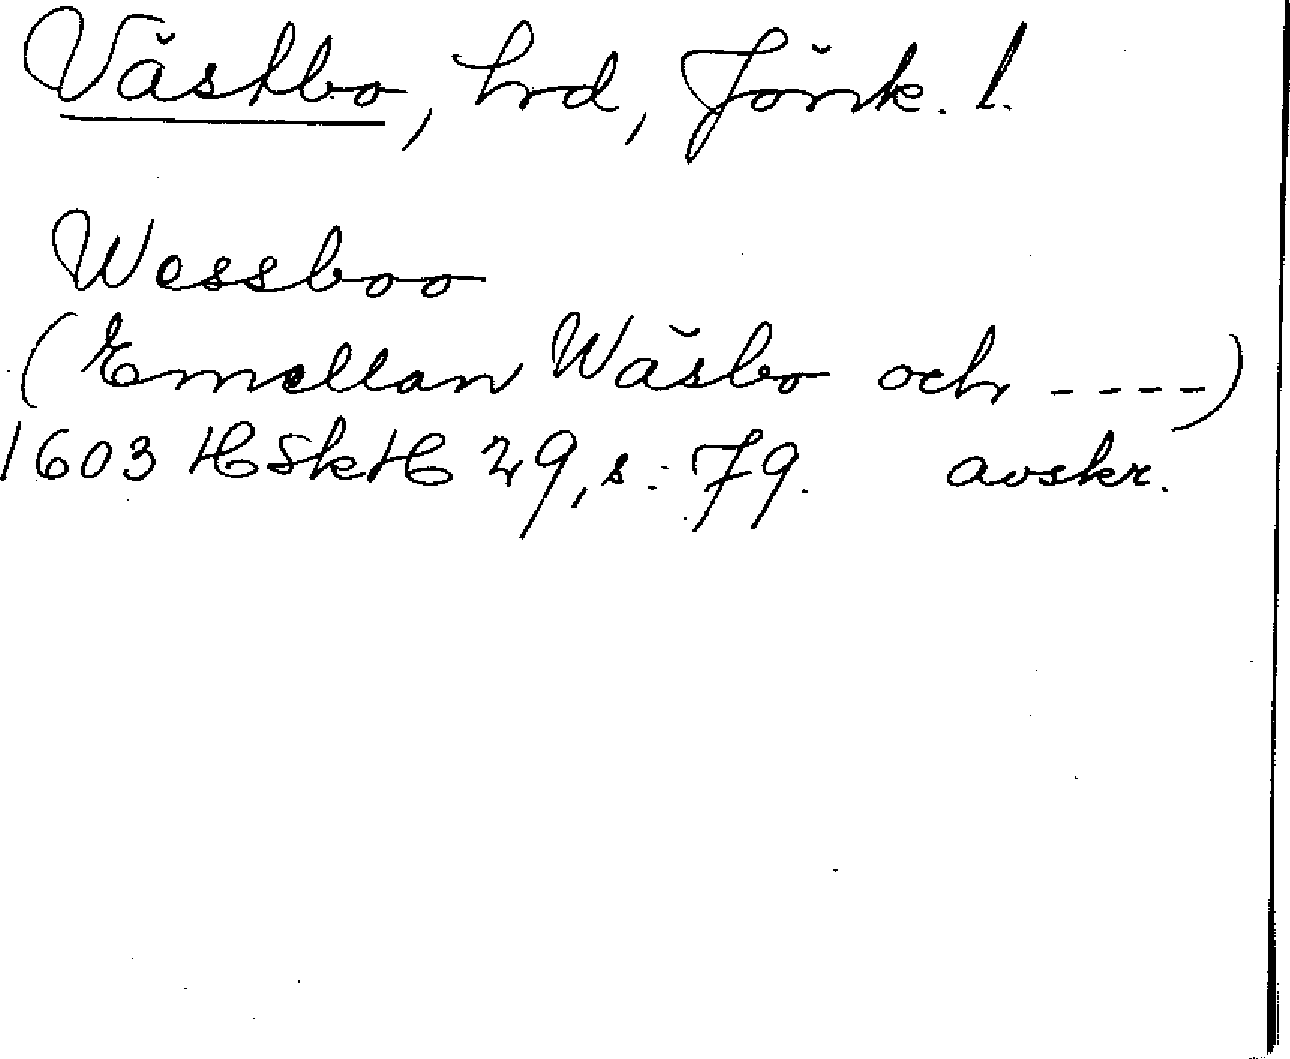 Västbo, hrd, Jönk. l.
Wessboo
(Emellan Wäsbo och ----)
1603 HSkH 29, s. 79. avskr.